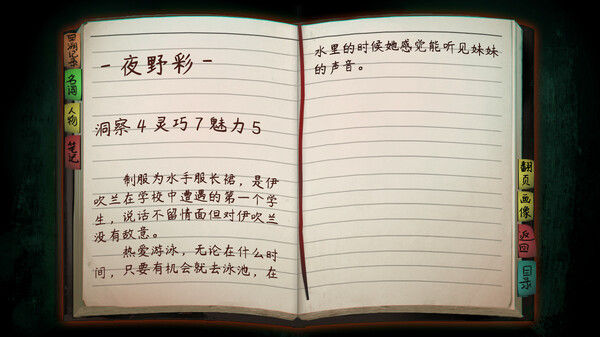 -夜野彩-
洞察4灵巧7魅力5
制服为水手服长裙，是伊
吹兰在学校中遭遇的第一个学
生，说话不留情面但对伊吹兰
没有敌意。
热爱游泳，无论在什么时
间，只要有机会就去泳池，在
水里的时候她感觉能听见妹妹
的声音。
名词
人物
笔记
翻页
画像
返回
目录